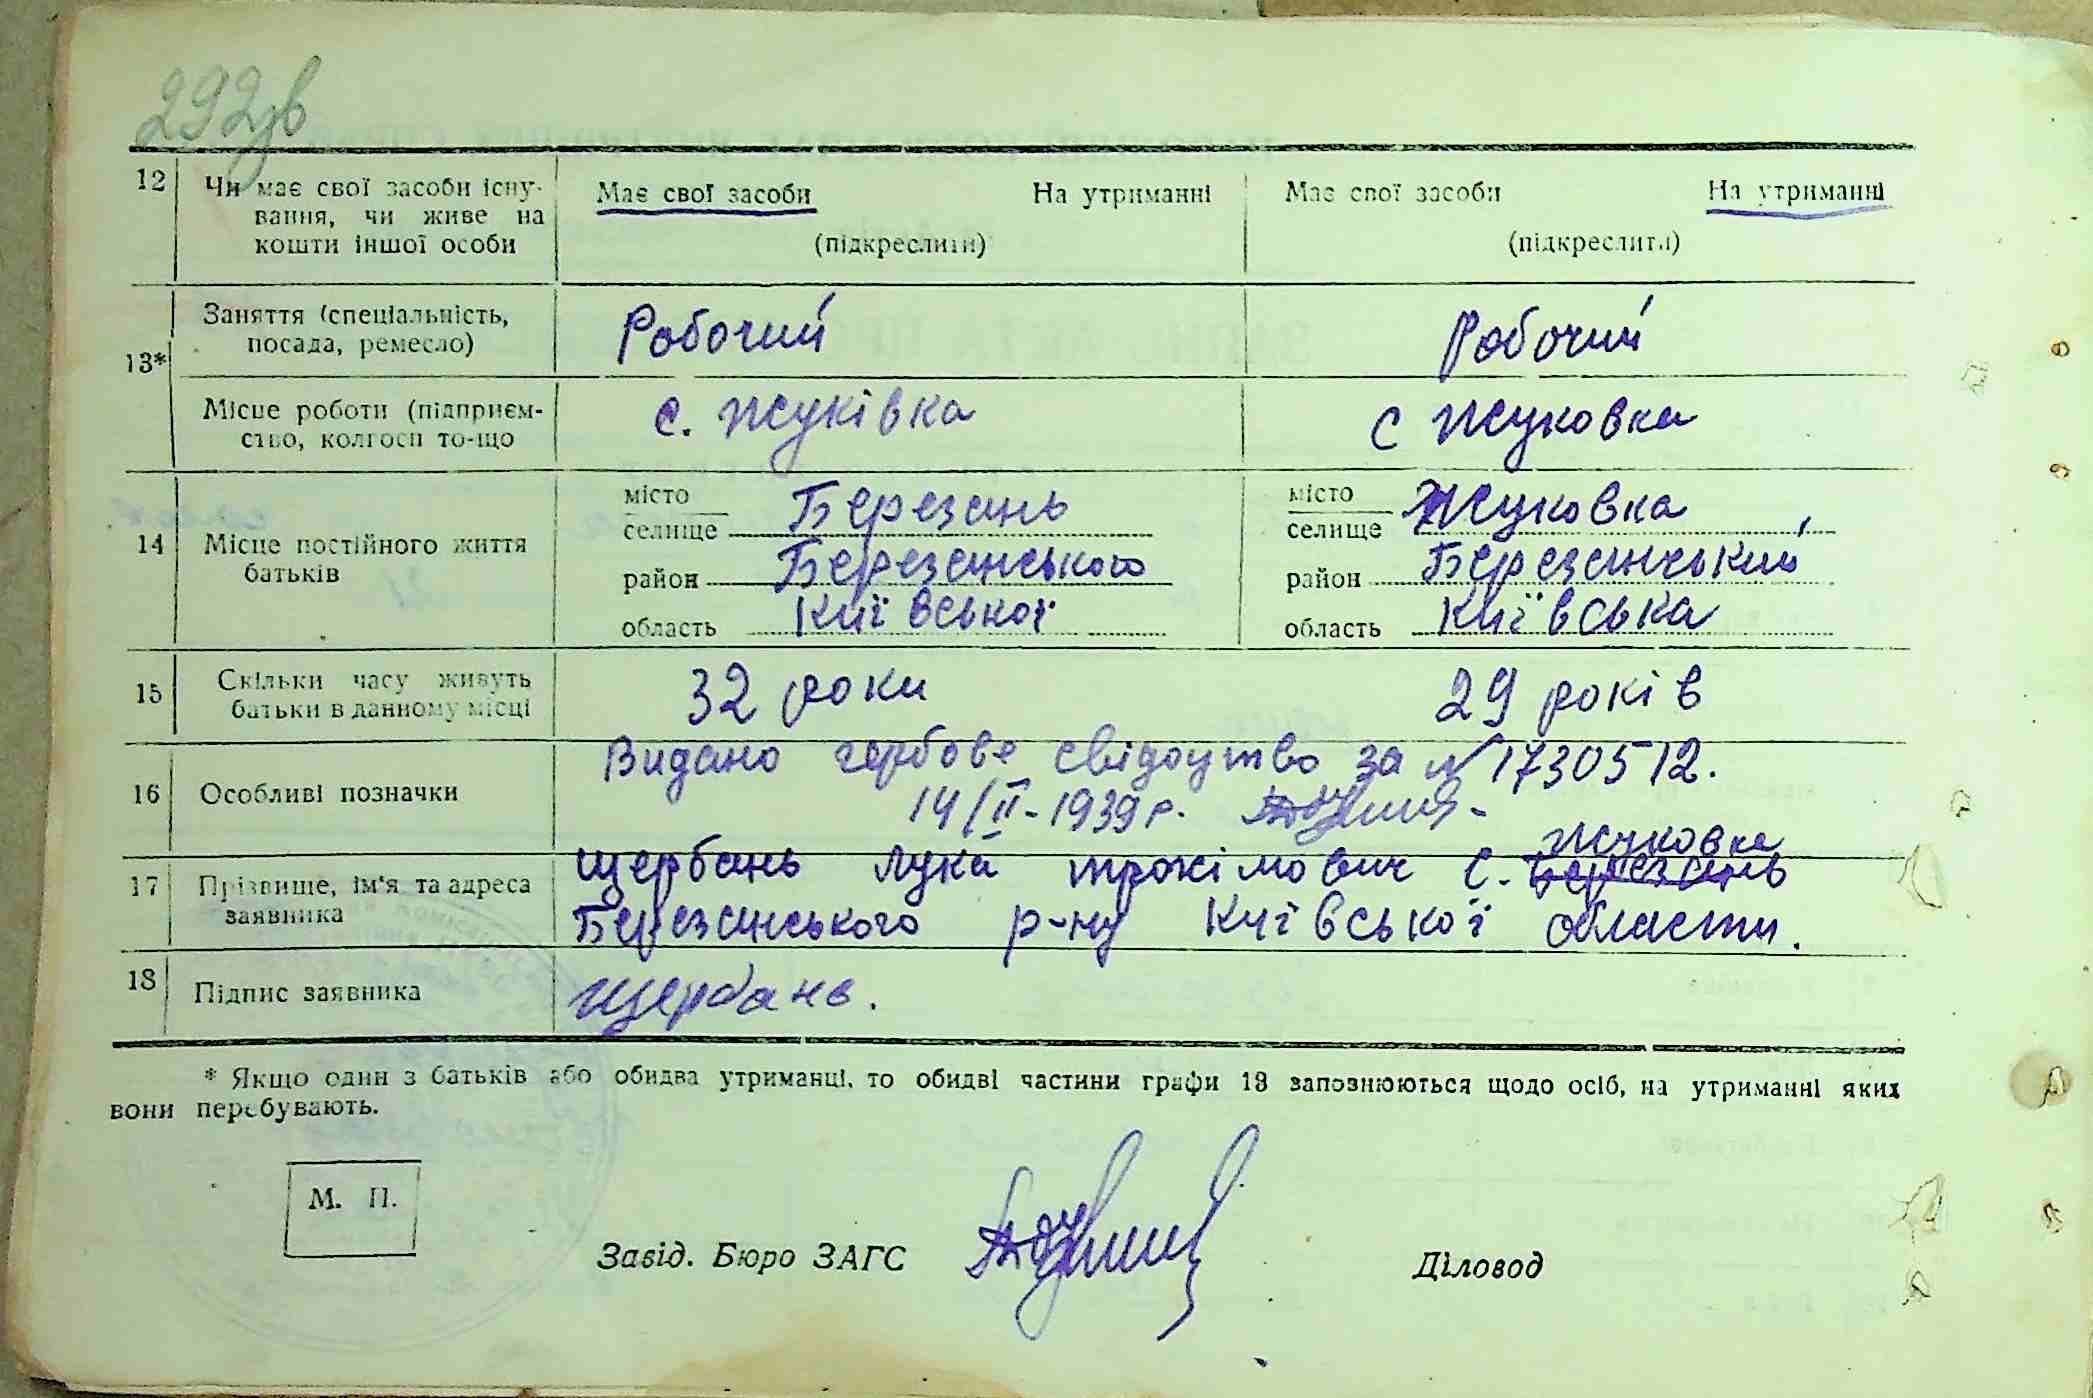 292зв
12 Чи має свої засоби існу- Має свої засоби На утриманні Має свої засоби На утриманні
вання, чи живе на
кошти іншої особи (підкреслити) (підкреслити)
13* Заняття (спеціальність, Робочий Робочий
посада, ремесло)
Місце роботи (підприєм- с. Жуківка с Жуковка
ство, колгосп то-що
14 Місце постійного життя батьків
місто Березань місто Жуковка
селище селище
район Березанського район Березанський
область Київської область Київська
15 Скільки часу живуть 32 роки 29 років
батьки в данному місці
16 Особливі позначки Видано гербове свідоцтво за № 1730512.
14/II-1939 р.
Жуковка
17 Прізвище, ім'я та адреса Щербань Лука трохімович с. Березань
заявника Березанського р-ну Київської области.
18 Підпис заявника Щербань.
* Якщо один з батьків або обидва утриманці, то обидві частини графи 13 запознюються щодо осіб, на утриманні яких
вони перебувають.
М. П.
Завід. Бюро ЗАГС Діловод